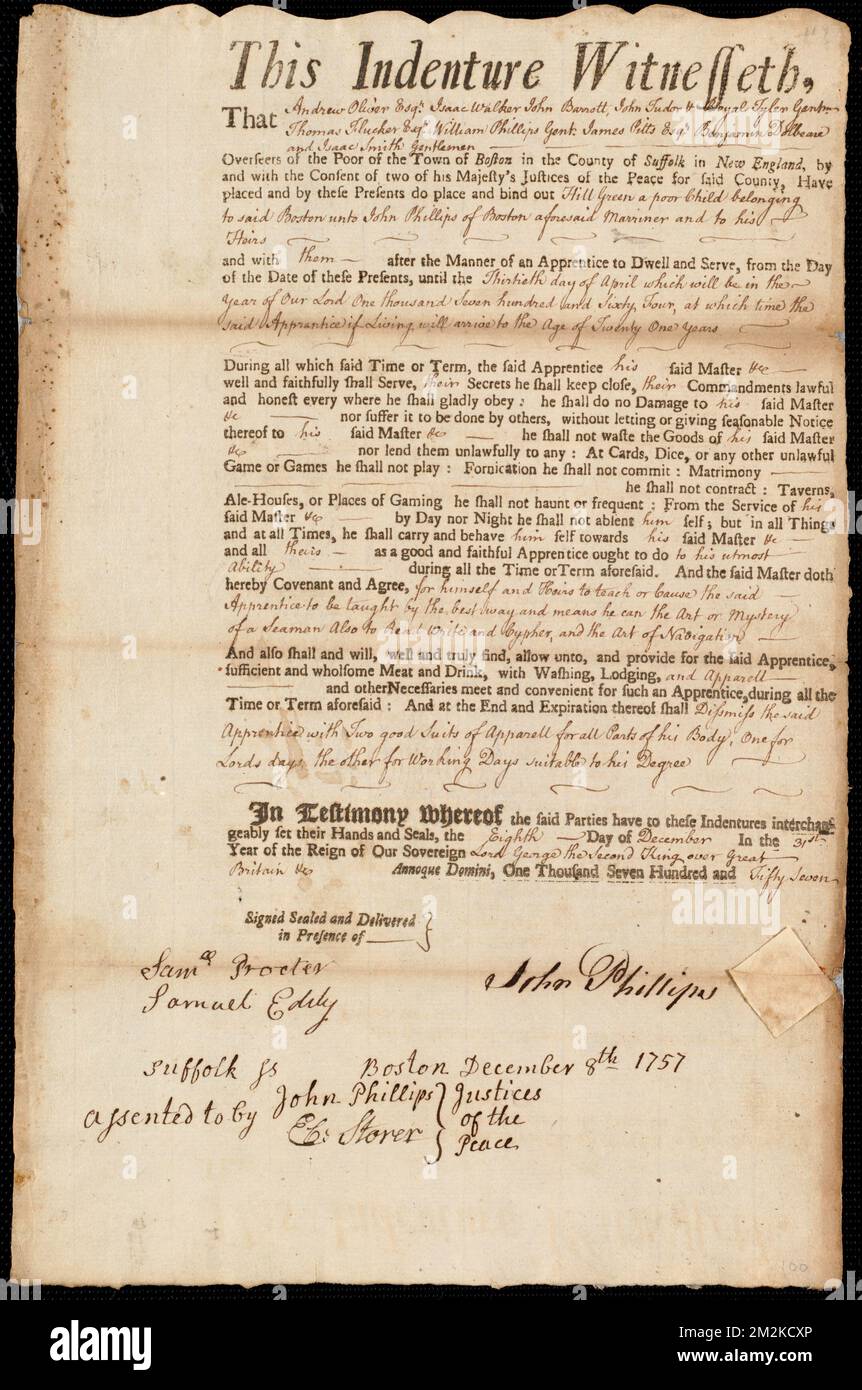 This Indenture Witneſſeth,
That Andrew Oliver Esqr. Isaac Walker John Barrett, John Tudor & Royal Tyler Gentn.
Thomas Flucker Esqr. William Phillips Gent. James Pitts Esqr. Benjamin Dolbeare
and Isaac Smith Gentlemen
Overſeers of the Poor of the Town of Boſton in the County of Suffolk in New England, by
and with the Conſent of two of his Majeſty's Juſtices of the Peace for ſaid County, Have
placed and by theſe Preſents do place and bind out Hill Green a poor Child belonging
to said Boston unto John Phillips of Boston aforesaid Marriner and to his
Heirs
and with them after the Manner of an Apprentice to Dwell and Serve, from the Day
of the Date of theſe Preſents, until the Thirtieth day of April which will be in the
Year of Our Lord One thousand Seven hundred and Sixty Four, at which time the
said Apprentice if Living will arrive to the Age of Twenty One Years
During all which ſaid Time or Term, the ſaid Apprentice his ſaid Maſter &c
well and faithfully ſhall Serve, their Secrets he ſhall keep cloſe, their Commandments lawful
and honeſt every where he ſhall gladly obey: he ſhall do no Damage to his ſaid Maſter
&c nor ſuffer it to be done by others, without letting or giving ſeaſonable Notice
thereof to his ſaid Maſter &c he ſhall not waſte the Goods of his ſaid Maſter
&c nor lend them unlawfully to any: At Cards, Dice, or any other unlawful
Game or Games he ſhall not play: Fornication he ſhall not commit: Matrimony
he ſhall not contract: Taverns,
Ale-Houſes, or Places of Gaming he ſhall not haunt or frequent: From the Service of his
ſaid Maſter &c by Day nor Night he ſhall not abſent him ſelf; but in all Things
and at all Times, he ſhall carry and behave him ſelf towards his ſaid Maſter &c
and all theirs as a good and faithful Apprentice ought to do to his utmost
Ability during all the Time or Term aforeſaid. And the ſaid Maſter doth
hereby Covenant and Agree, for himself and Heirs to teach or Cause the said
Apprentice to be taught by the best way and means he can the Art or Mystery
of a Seaman Also to Read Write and Cypher, and the Art of Navigation
And alſo ſhall and will, well and truly find, allow unto, and provide for the ſaid Apprentice,
ſufficient and wholſome Meat and Drink, with Waſhing, Lodging, and Apparell
and other Neceſſaries meet and convenient for ſuch an Apprentice, during all the
Time or Term aforeſaid: And at the End and Expiration thereof ſhall Diſmiſs the said
Apprentice with Two good Suits of Apparell for all Parts of his Body, One for
Lords days, the other for Working Days suitable to his Degree
In Teſtimony Whereof the ſaid Parties have to theſe Indentures interchan-
geably ſet their Hands and Seals, the Eighth Day of December In the 31st
Year of the Reign of Our Sovereign Lord George the Second King over Great
Britain &c Annoque Domini, One Thouſand Seven Hundred and Fifty Seven
Signed Sealed and Delivered
in Preſence of
Samll Procter
Samuel Eddy
John Phillips
Suffolk ſs Boston December 8th 1757
Aſsented to by John Phillips Justices
Ebr Storer of the
Peace
100
alamy
Image ID: 2M2KCXP
www.alamy.com
2M2KCXP